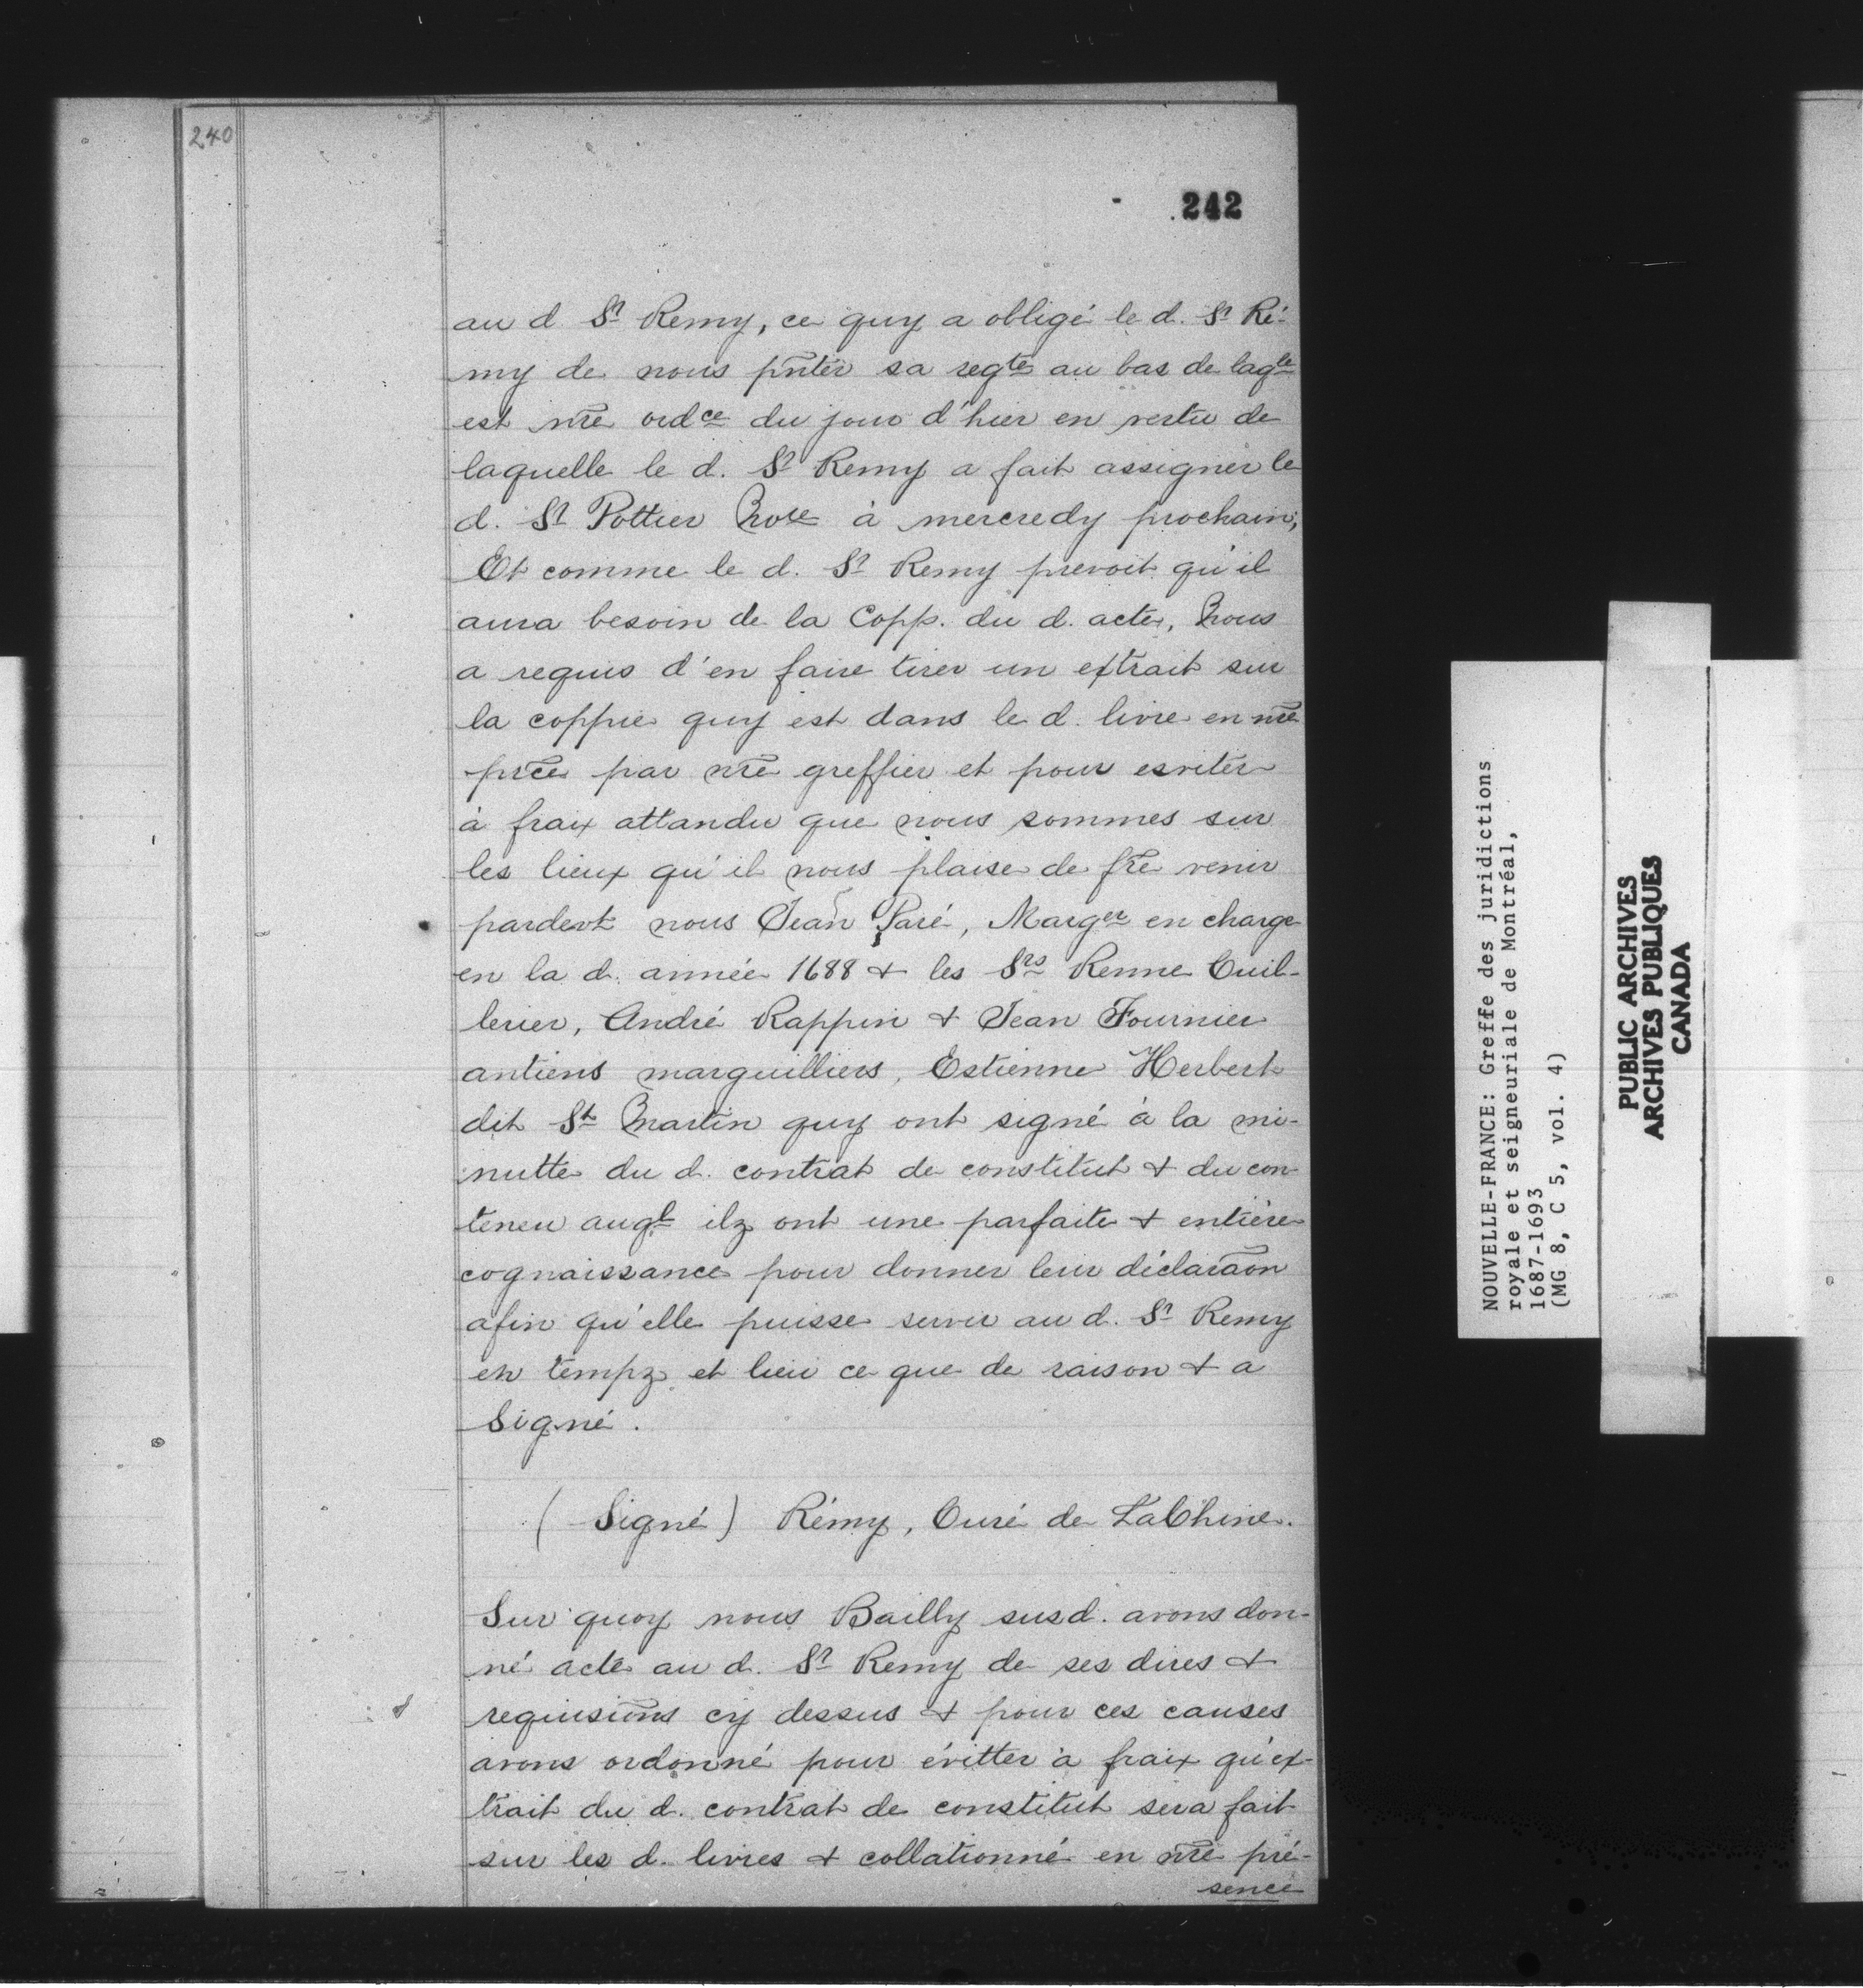 240
242
au d Sr Remy, ce quy a obligé le d. Sr Ré-
my de nous pñter sa reqte au bas de laqle
est nr̃e ordce du jour d'hier en vertu de
laquelle le d. Sr Remy a fait assigner le
d. Sr Pottier Nore à mercredy prochain;
Et comme le d. Sr Remy prevoit qu'il
aura besoin de la Copp. du d. acte, Nous
a requis d'en faire tirer un extrait sur
la coppie quy est dans le d. livre en nr̃e
pñce par nr̃e greffier et pour esviter
à fraix attandu que nous sommes sur
les lieux qu'il nous plaise de fr̃e venir
pardevt nous Jean Paré, Marger en charge
en la d. année 1688 & les Srs Renne Cuil-
lerier, André Rappin & Jean Fournier
antiens marguilliers, Estienne Herbert
dit St Martin quy ont signé à la mi-
nutte du d. contrat de constitut & du con-
teneu auql ilz ont une parfaite & entière
cognaissance pour donner leur déclaraõn
afin qu'elle puisse servir au d. Sr Remy
en tempz et lieu ce que de raison & a
Signé.
(Signé) Rémy, Curé de LaChine.
Sur quoy nous Bailly susd. avons don-
né acte au d. Sr Remy de ses dires &
requisiõns cy dessus & pour ces causes
avons ordonné pour évitter à fraix qu'ex-
trait du d. contrat de constitut sera fait
sur les d. livres & collationné en nr̃e pré-
sence
NOUVELLE-FRANCE: Greffe des juridictions
royale et seigneuriale de Montréal,
1687-1693
(MG 8, C 5, vol. 4)
PUBLIC ARCHIVES
ARCHIVES PUBLIQUES
CANADA